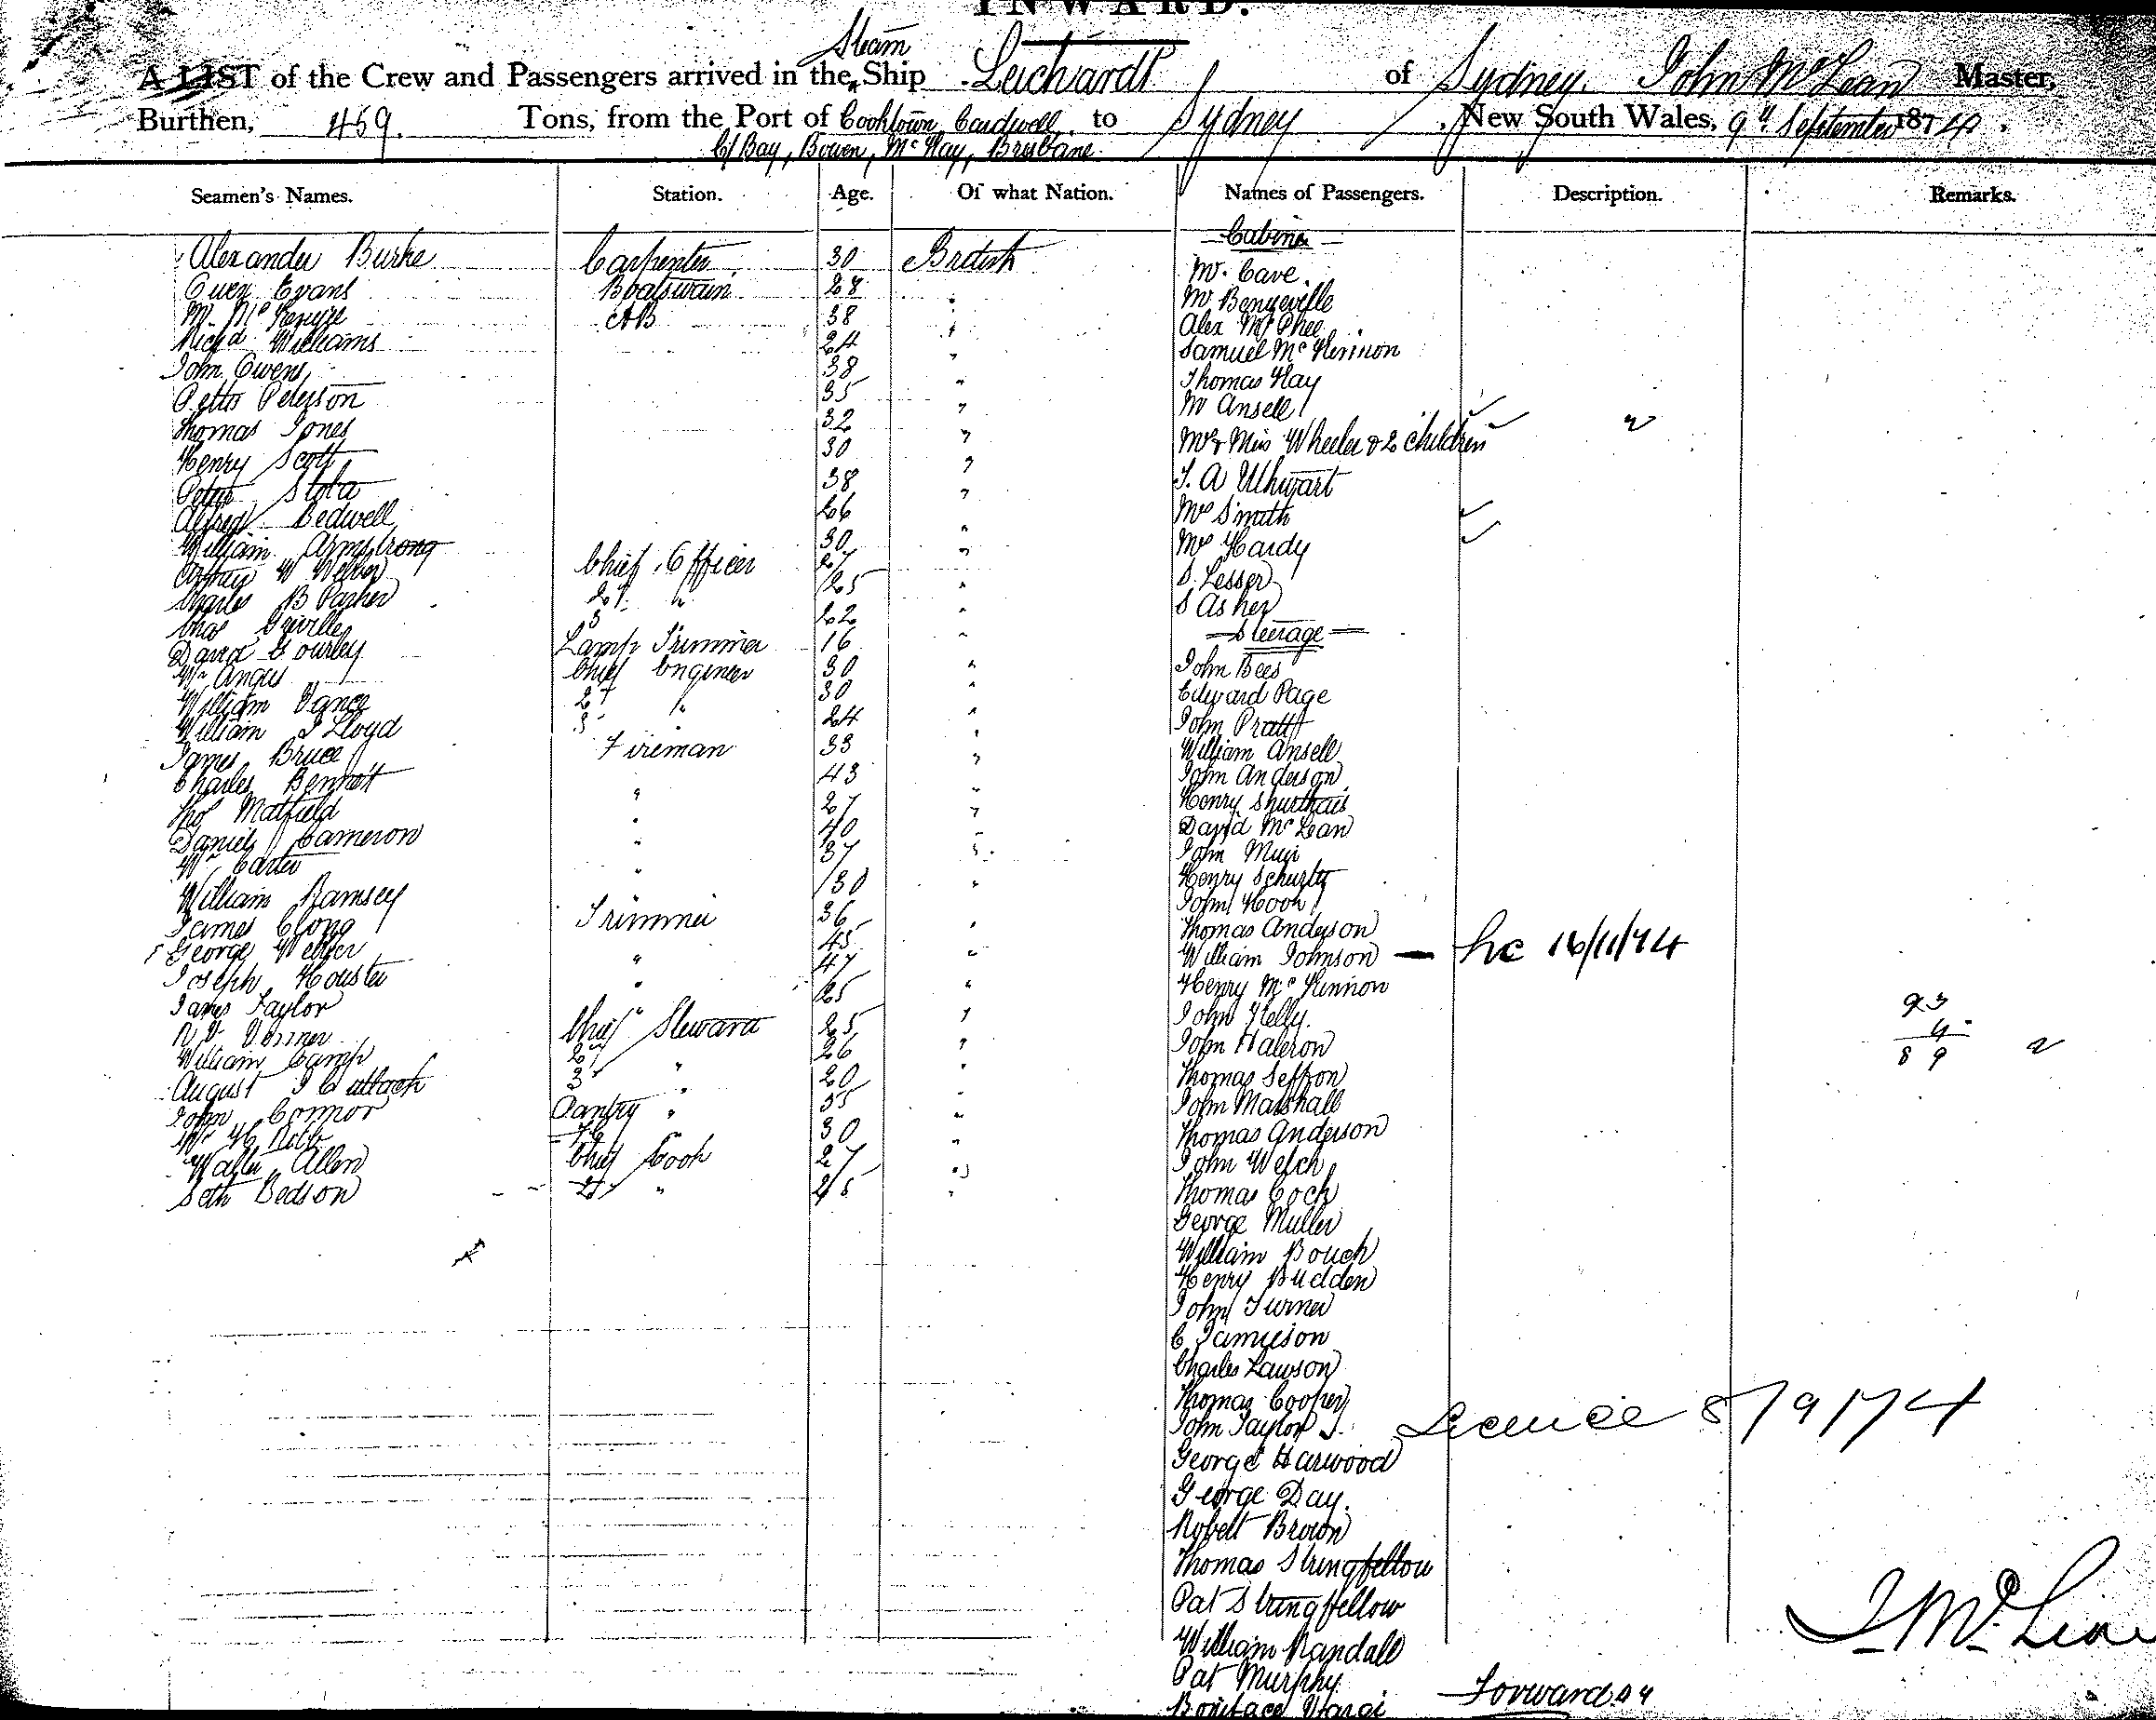 INWARD.
Steam
A LIST of the Crew and Passengers arrived in the Ship Leichardt of Sydney, John McLean Master,
Burthen, 459. Tons, from the Port of Cooktown Cardwell to Sydney, New South Wales, 9th September 1874.
Bay, Bowen, McKay, Brisbane.
Seamen's Names. Station. Age. Of what Nation. Names of Passengers. Description. Remarks.
Cabin
Alexander Burke Carpenter 30 British Mr. Cave
Owen Evans Boatswain 28 " Mr
M. AB 38 " Alex McPhee
Richd Williams 24 " Samuel McKinnon
John Owens 38 " Thomas Hay
Peterson 35 " Mr Ansell
Thomas Jones 32 " Mr & Mrs Wheeler & 2 children
Henry Scott 30 "
Peter 38 " J. A
Alfred Bedwell 26 " Mrs Smith
William Armstrong 30 " Mrs Hardy
W Chief Officer 27 " S. Lesser
Charles B Parker 2d " 25 " S Asher
Chas Greville 3 22 " Steerage
David Gourley Lamp Trimmer 16 "
Wm Angus Chief Engineer 30 " John Bees
William Vance 2d " 30 " Edward Page
William J Lloyd 3 24 " John Pratt
James Bruce Fireman 33 " William Ansell
Charles Bennett " 43 " John Anderson
Thos Matfield " 27 " Henry
Daniel Cameron " 40 " David McLean
Wm Carter " 37 " John Muir
William Ramsey " 30 " Henry
James Trimmer 36 " John Hook
George " 45 " Thomas Anderson
Joseph " 47 " William Johnson — hc 16/11/74
James Taylor 25 " Henry McKinnon
R. V. Chief Steward 25 " John Kelly
William Camp 2d " 26 " John
August 3 " 20 " Thomas
John Connor Pantry " 35 " John Marshall
Wm H 30 " Thomas Anderson
Walter Allen Chief Cook 27 " John Welch
Seth Bedson 2d " 25 " Thomas
George Muller
William
Henry Budden
John Turner
C Jamieson
Charles Lawson
Thomas Cooper
John Taylor
George Harwood
George Day.
Robert Brown
Thomas Stringfellow
Pat Stringfellow
William Randall
Pat Murphy
Boniface
93
4
89
Licence 8/9/74
J McLean
Forward